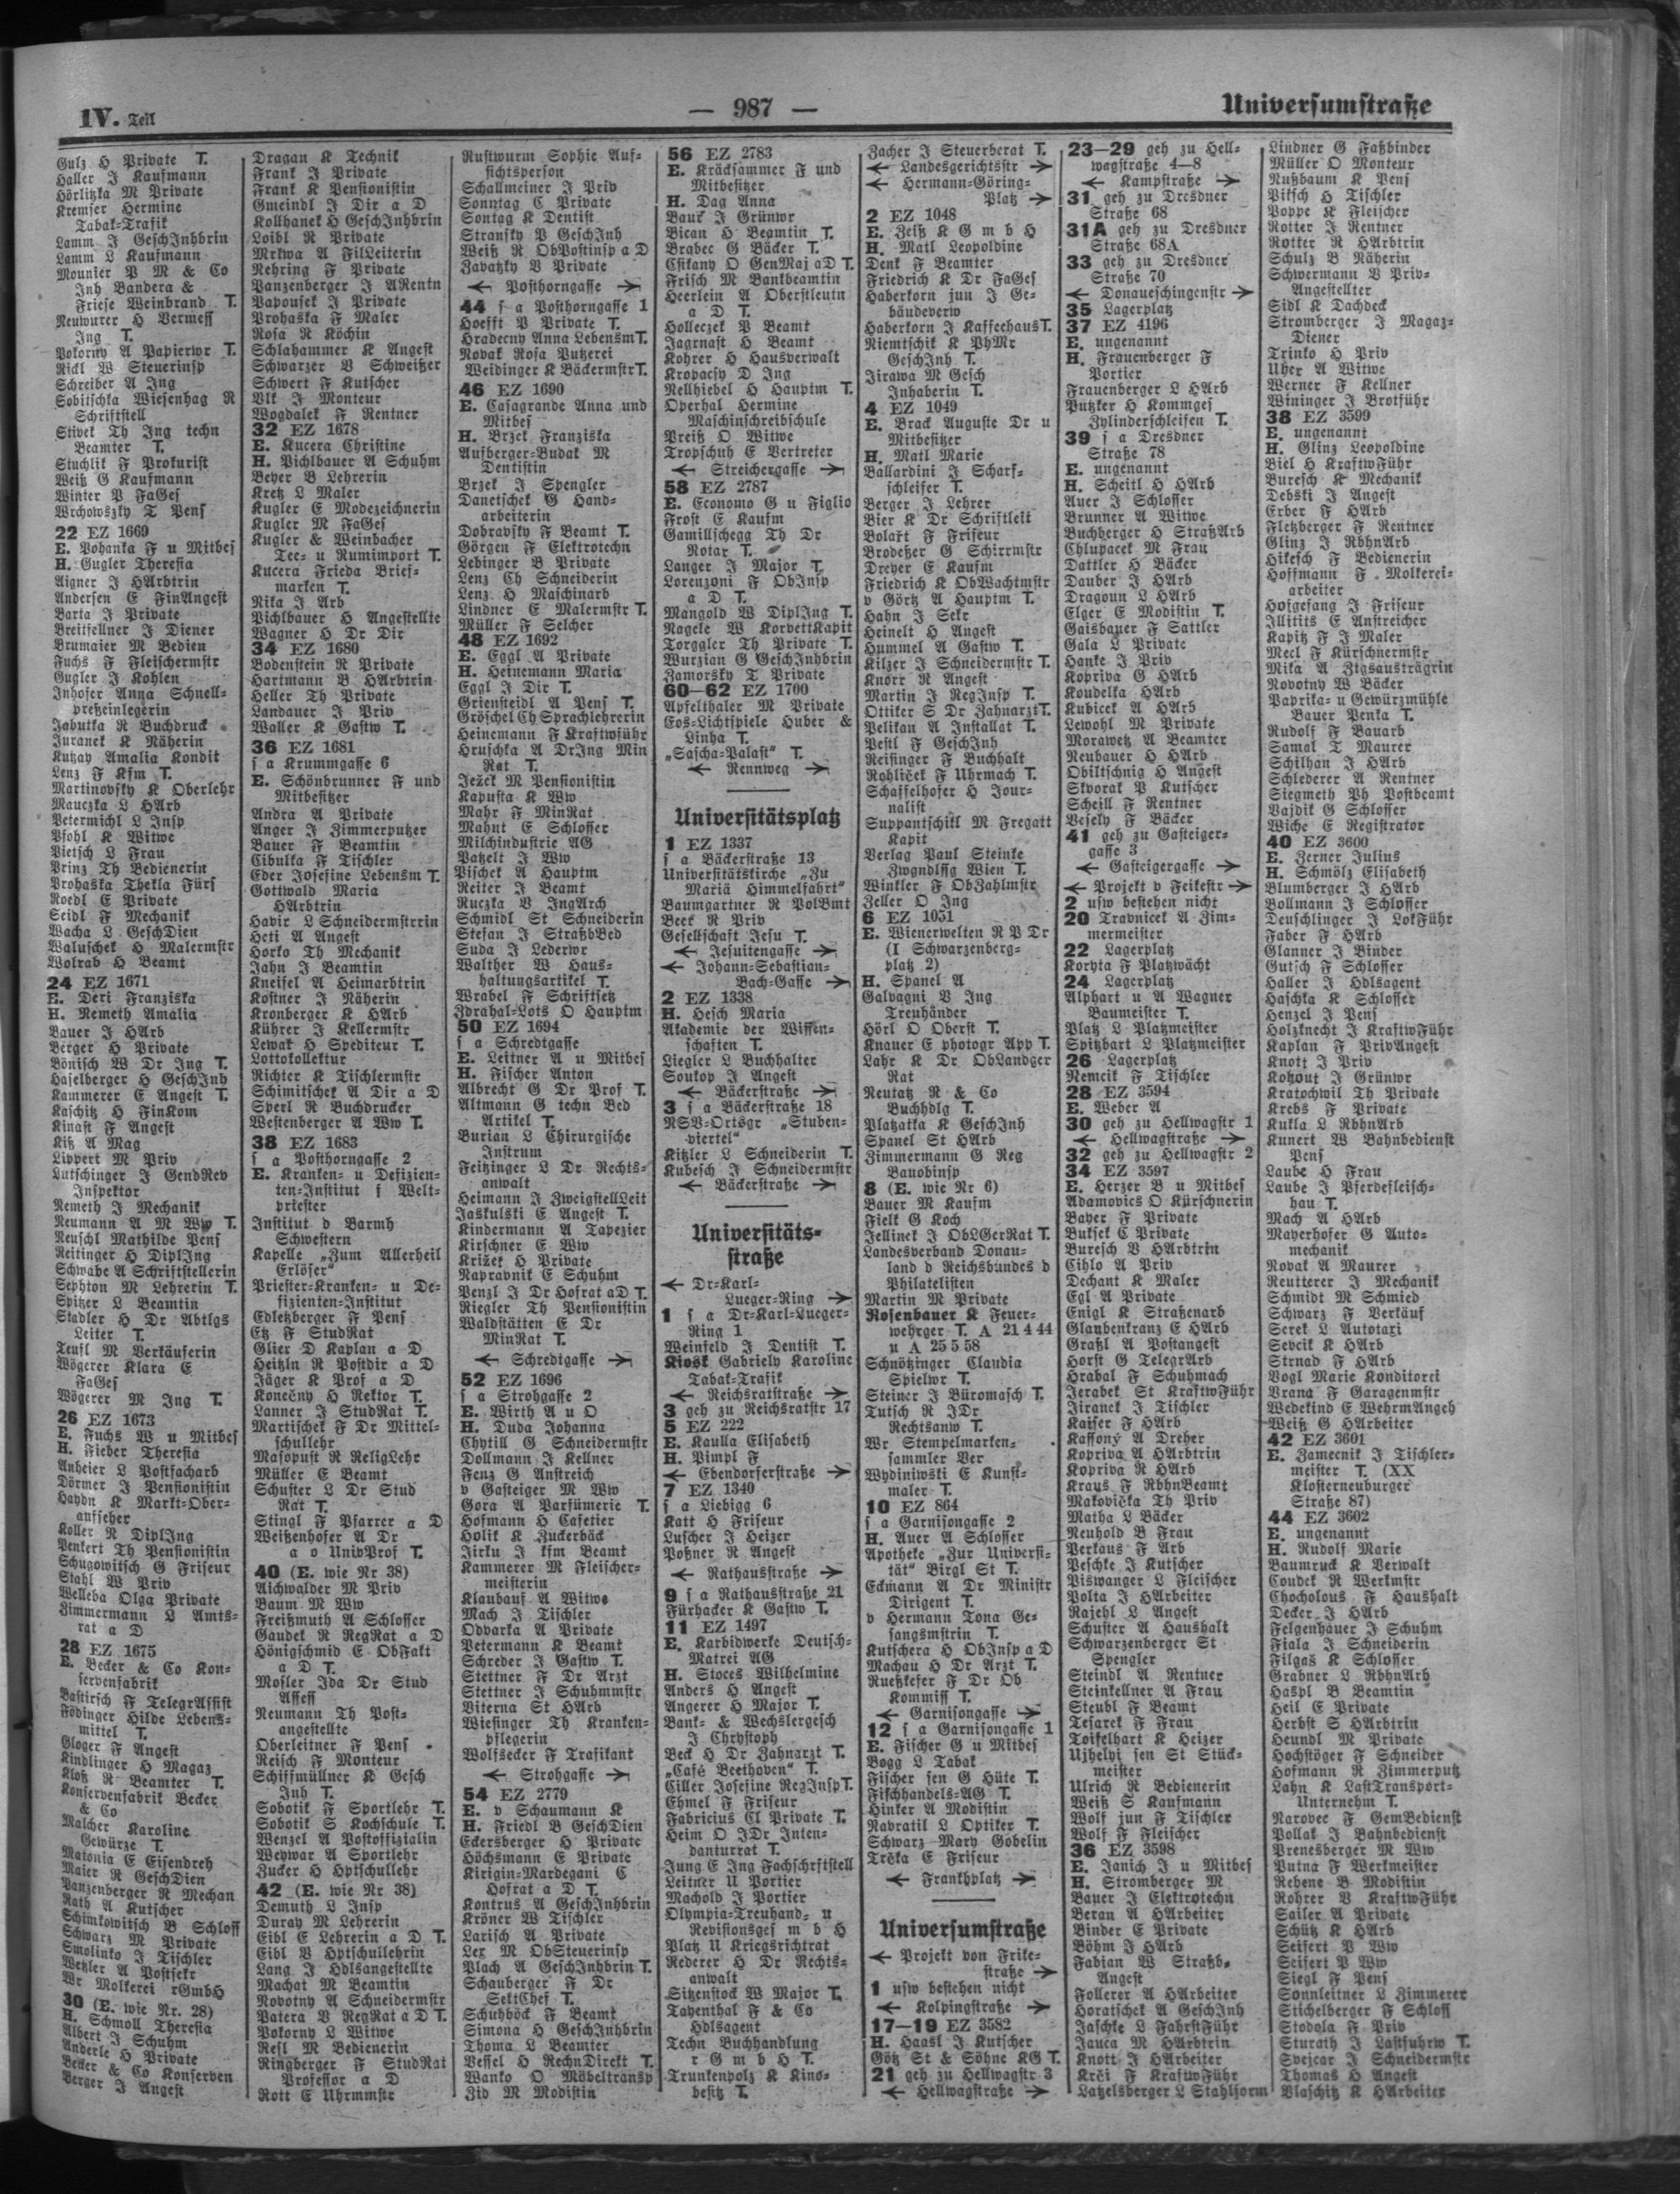 IV. Teil
— 987 —
Universumstraße
Gulz H Private T.
Haller J Kaufmann
Hörlitzka M Private
Kremser Hermine
Tabak-Trafik
Lamm J GeschInhbrin
Lamm L Kaufmann
Mounier P M & Co
Inh Bandera &
Friese Weinbrand T.
Neuwurer H Vermess
Ing T.
Pokorny A Papierwr T.
Rickl W Steuerinsp
Schreiber A Ing
Sobitschka Wiesenhag R
Schriftstell
Stivek Th Ing techn
Beamter T.
Stuchlik F Prokurist
Weiß G Kaufmann
Winter P FaGes
Wrchowszky T Pens
22 EZ 1669
E. Pohanka F u Mitbes
H. Gugler Theresia
Aigner J HArbtrin
Andersen E FinAngest
Barta J Private
Breitfellner J Diener
Brumaier M Bedien
Fuchs F Fleischermstr
Gugler J Kohlen
Inhofer Anna Schnell-
preßeinlegerin
Jabutka R Buchdruck
Juranek K Näherin
Kutzay Amalia Kondit
Lenz F Kfm T.
Martinovsky K Oberlehr
Mauczka L HArb
Petermichl L Insp
Pfohl K Witwe
Pietsch L Frau
Prinz Th Bedienerin
Prohaska Thekla Fürs
Roedl E Private
Seidl F Mechanik
Wacha L GeschDien
Waluschek H Malermstr
Wolrab H Beamt
24 EZ 1671
E. Deri Franziska
H. Nemeth Amalia
Bauer J HArb
Berger H Private
Bönisch W Dr Ing T.
Haselberger H GeschInh
Kammerer E Angest T.
Kaschitz H FinKom
Kinast F Angest
Kitz A Mag
Lippert M Priv
Lutschinger J GendRev
Inspektor
Nemeth J Mechanik
Neumann A M Ww T.
Reuschl Mathilde Pens
Reitinger H DiplIng
Schwabe A Schriftstellerin
Sephton M Lehrerin T.
Spitzer L Beamtin
Stadler H Dr Abtlgs
Leiter T.
Teufl M Verkäuferin
Wögerer Klara E
FaGes
Wögerer M Ing T.
26 EZ 1673
E. Fuchs W u Mitbes
H. Fieber Theresia
Anbeier L Postfacharb
Dörmer J Pensionistin
Haydn K Markt-Ober-
aufseher
Koller R DiplIng
Penkert Th Pensionistin
Schugowitsch G Friseur
Stahl W Priv
Welleba Olga Private
Zimmermann L Amts-
rat a D
28 EZ 1675
E. Becker & Co Kon-
servenfabrik
Bastirsch F TelegrAssist
Födinger Hilde Lebens-
mittel T.
Gloger F Angest
Kindlinger H Magaz
Kloß R Beamter T.
Konservenfabrik Becker
& Co
Malcher Karoline
Gewürze T.
Matonia E Eisendreh
Maier R GeschDien
Panzenberger R Mechan
Rath A Kutscher
Schimkowitsch B Schloss
Schwarz M Private
Smolinko J Tischler
Wetzler A Postsekr
Wr Molkerei rGmbH
30 (E. wie Nr. 28)
H. Schmoll Theresia
Albert J Schuhm
Anderle H Private
Becker & Co Konserven
Berger J Angest
Dragan K Technik
Frank J Private
Frank K Pensionistin
Gmeindl J Dir a D
Kollhanek H GeschInhbrin
Loibl R Private
Mrkwa A FilLeiterin
Nehring F Private
Panzenberger J ARentn
Papousek J Private
Prohaska F Maler
Rosa R Köchin
Schlahammer K Angest
Schwarzer V Schweißer
Schwert F Kutscher
Vlk J Monteur
Wogdalek F Rentner
32 EZ 1678
E. Kucera Christine
H. Pichlbauer A Schuhm
Beyer B Lehrerin
Kretz L Maler
Kugler E Modezeichnerin
Kugler M FaGes
Kugler & Weinbacher
Tee- u Rumimport T.
Kucera Frieda Brief-
marken T.
Nika J Arb
Pichlbauer H Angestellte
Wagner H Dr Dir
34 EZ 1680
Bodenstein R Private
Hartmann B HArbtrin
Heller Th Private
Landauer J Priv
Waller K Gastw T.
36 EZ 1681
s a Krummgasse 6
E. Schönbrunner F und
Mitbesitzer
Andra A Private
Anger J Zimmerputzer
Bauer F Beamtin
Cibulka F Tischler
Eder Josefine Lebensm T.
Gottwald Maria
HArbtrin
Havir L Schneidermstrrin
Heti A Angest
Horko Th Mechanik
Jahn J Beamtin
Kneisel A Heimarbtrin
Kostner J Näherin
Kronberger K HArb
Kührer J Kellermstr
Lewak H Spediteur T.
Lottokollektur
Richter K Tischlermstr
Schimitschek A Dir a D
Sperl R Buchdrucker
Westenberger A Ww T.
38 EZ 1683
s a Posthorngasse 2
E. Kranken- u Defizien-
ten-Institut f Welt-
priester
Institut d Barmh
Schwestern
Kapelle „Zum Allerheil
Erlöser“
Priester-Kranken- u De-
fizienten-Institut
Edletzberger F Pens
Etz F StudRat
Glier D Kaplan a D
Heitzln R Postdir a D
Jäger K Prof a D
Konečny H Rektor T.
Lanner J StudRat T.
Martischek F Dr Mittel-
schullehr
Masopust R ReligLehr
Müller E Beamt
Schuster L Dr Stud
Rat T.
Stingl F Pfarrer a D
Weißenhofer A Dr
a o UnivProf T.
40 (E. wie Nr 38)
Aichwalder M Priv
Baum M Ww
Freißmuth A Schlosser
Gaudek R RegRat a D
Hönigschmid E ObFakt
a D T.
Mosler Ida Dr Stud
Assess
Neumann Th Post-
angestellte
Oberleitner F Pens
Reisch F Monteur
Schiffmüllner K Gesch
Inh T.
Sobotik F Sportlehr T.
Sobotik S Kochschule T.
Wenzel A Postoffizialin
Weywar A Sportlehr
Zucker H Hptschullehr
42 (E. wie Nr 38)
Demuth L Insp
Duray M Lehrerin
Eibl E Lehrerin a D T.
Eibl V Hptschullehrin
Lang J Hdlsangestellte
Machat M Beamtin
Novotny A Schneidermstr
Patera V RegRat a D T.
Pokorny L Witwe
Resl M Bedienerin
Ringberger F StudRat
Professor a D
Rott E Uhrmmstr
Rustwurm Sophie Auf-
sichtsperson
Schallmeiner J Priv
Sonntag C Private
Sontag K Dentist
Stransky P GeschInh
Weiß R ObPostinsp a D
Zavatzky V Private
← Posthorngasse →
44 s a Posthorngasse 1
Hoefft P Private T.
Hradecny Anna LebensmT.
Novak Rosa Putzerei
Weidinger K BäckermstrT.
46 EZ 1690
E. Casagrande Anna und
Mitbes
H. Brzek Franziska
Aufberger-Budak M
Dentistin
Brzek J Spengler
Danetschek G Hand-
arbeiterin
Dobravsky F Beamt T.
Görgen F Elektrotechn
Lebinger B Private
Lenz Ch Schneiderin
Lenz H Maschinarb
Lindner E Malermstr T.
Müller F Selcher
48 EZ 1692
E. Eggl A Private
H. Heinemann Maria
Eggl J Dir T.
Griensteidl A Pens T.
Gröschel Ch Sprachlehrerin
Heinemann F Kraftwführ
Hruschka A DrIng Min
Rat T.
Ježek M Pensionistin
Kapusta K Ww
Mahr F MinRat
Mahnt E Schlosser
Milchindustrie AG
Patzelt J Ww
Pischek A Hauptm
Reiter J Beamt
Ruczka V IngArch
Schmidl St Schneiderin
Stefan J StraßbBed
Suda J Lederwr
Walther W Haus-
haltungsartikel T.
Wrabel F Schriftsetz
Zdrahal-Lots O Hauptm
50 EZ 1694
s a Schredtgasse
E. Leitner A u Mitbes
H. Fischer Anton
Albrecht G Dr Prof T.
Altmann G techn Bed
Artikel T.
Burian L Chirurgische
Instrum
Feitzinger L Dr Rechts-
anwalt
Heimann J ZweigstellLeit
Jaskulski E Angest T.
Kindermann A Tapezier
Kirschner E Ww
Križek H Private
Napravnik E Schuhm
Penzl J Dr Hofrat aD T.
Riegler Th Pensionistin
Waldstätten E Dr
MinRat T.
← Schredtgasse →
52 EZ 1696
s a Strohgasse 2
E. Wirth A u O
H. Duda Johanna
Chytill G Schneidermstr
Dollmann J Kellner
Fenz G Anstreich
v Gasteiger M Ww
Gora A Parfümerie T.
Hofmann H Cafetier
Holik K Zuckerbäck
Jirku J kfm Beamt
Kammerer M Fleischer-
meisterin
Klaubauf A Witwe
Mach J Tischler
Odvarka A Private
Petermann K Beamt
Schreder J Gastw T.
Stettner F Dr Arzt
Stettner J Schuhmmstr
Viterna St HArb
Wiesinger Th Kranken-
pflegerin
Wolfsecker F Trafikant
← Strohgasse →
54 EZ 2779
E. v Schaumann K
H. Friedl B GeschDien
Eckersberger H Private
Höchsmann E Private
Kirigin-Mardegani C
Hofrat a D T.
Kontrus A GeschInhbrin
Kröner W Tischler
Larisch A Private
Lex M ObSteuerinsp
Plach A GeschInhbrin T.
Schauberger F Dr
SektChef T.
Schuhböck F Beamt
Simona H GeschInhbrin
Thoma L Beamter
Vessel H RechnDirekt T.
Wanko O Möbeltransp
Zid M Modistin
56 EZ 2783
E. Kräcksammer F und
Mitbesitzer
H. Dag Anna
Bauč J Grünwr
Bican H Beamtin T.
Brabec G Bäcker T.
Csikany O GenMaj aD T.
Frisch M Bankbeamtin
Heerlein A Oberstleutn
a D T.
Holleczek P Beamt
Jagrnast H Beamt
Kohrer H Hausverwalt
Kropacsy D Ing
Nellhiebel H Hauptm T.
Operhal Hermine
Maschinschreibschule
Preiß O Witwe
Tropschuh E Vertreter
← Streichergasse →
58 EZ 2787
E. Economo G u Figlio
Frost E Kaufm
Gamillschegg Th Dr
Notar T.
Langer J Major T.
Lorenzoni F ObInsp
a D T.
Mangold W DiplIng T.
Nagele W KorvettKapit
Torggler Th Private T.
Wurzian G GeschInhbrin
Zamorsky T Private
60—62 EZ 1700
Apfelthaler M Private
Eos-Lichtspiele Huber &
Linha T.
„Sascha-Palast“ T.
← Rennweg →
Universitätsplatz
1 EZ 1337
s a Bäckerstraße 13
Universitätskirche „Zu
Mariä Himmelfahrt“
Baumgartner R PolBmt
Beer R Priv
Gesellschaft Jesu T.
← Jesuitengasse →
← Johann-Sebastian-
Bach-Gasse →
2 EZ 1338
H. Hesch Maria
Akademie der Wissen-
schaften T.
Liegler L Buchhalter
Soukop J Angest
← Bäckerstraße →
3 s a Bäckerstraße 18
NSV-Ortsgr „Stuben-
viertel“
Kitzler L Schneiderin T.
Kubesch J Schneidermstr
← Bäckerstraße →
Universitäts-
straße
← Dr-Karl-
Lueger-Ring →
1 s a Dr-Karl-Lueger-
Ring 1
Weinfeld J Dentist T.
Kiosk Gabriely Karoline
Tabak-Trafik
← Reichsratstraße →
3 geh zu Reichsratstr 17
5 EZ 222
E. Kaulla Elisabeth
H. Pimpl F
← Ebendorferstraße →
7 EZ 1340
s a Liebigg 6
Katt H Friseur
Luscher J Heizer
Poßner R Angest
← Rathausstraße →
9 s a Rathausstraße 21
Fürhacker K Gastw T.
11 EZ 1497
E. Karbidwerke Deutsch-
Matrei AG
H. Stoces Wilhelmine
Anders H Angest
Angerer H Major T.
Bank- & Wechslergesch
J Chrystoph
Beck H Dr Zahnarzt T.
„Café Beethoven“ T.
Ciller Josefine RegInspT.
Ehmel F Friseur
Fabricius El Private T.
Heim O JDr Inten-
danturrat T.
Jung E Ing Fachschrftstell
Leitner U Portier
Machold J Portier
Olympia-Treuhand- u
Revisionsges m b H
Platz U Kriegsrichtrat
Rederer H Dr Rechts-
anwalt
Sitzenstock W Major T.
Tayenthal F & Co
Hdlsagent
Techn Buchhandlung
r G m b H T.
Trunkenpolz K Kino-
besitz T.
Zacher J Steuerberat T.
← Landesgerichtsstr →
← Hermann-Göring-
Platz →
2 EZ 1048
E. Zeiß K G m b H
H. Matl Leopoldine
Denk F Beamter
Friedrich K Dr FaGes
Haberkorn jun J Ge-
bäudeverw
Haberkorn J KaffeehausT.
Niemtschik K PhMr
GeschInh T.
Jirawa M Gesch
Inhaberin T.
4 EZ 1049
E. Brack Auguste Dr u
Mitbesitzer
H. Matl Marie
Ballardini J Scharf-
schleifer T.
Berger J Lehrer
Bier K Dr Schriftleit
Bolart F Friseur
Brodeßer G Schirrmstr
Dreyer E Kaufm
Friedrich K ObWachtmstr
v Görtz A Hauptm T.
Hahn J Sekr
Heinelt H Angest
Hummel A Gastw T.
Kilzer J Schneidermstr T.
Knorr R Angest
Martin J RegInsp T.
Ottiker S Dr ZahnarztT.
Pelikan A Installat T.
Pestl F GeschInh
Reisinger F Buchhalt
Rohliček F Uhrmach T.
Schaffelhofer H Jour-
nalist
Suppantschitl M Fregatt
Kapit
Verlag Paul Steinke
Zwgndlssg Wien T.
Winkler F ObZahlmstr
Zeller O Ing
6 EZ 1051
E. Wienerwelten R P Dr
(I Schwarzenberg-
platz 2)
H. Spanel A
Galvagni V Ing
Treuhänder
Hörl O Oberst T.
Knauer E photogr App T.
Lahr K Dr ObLandger
Rat
Neutatz R & Co
Buchhdlg T.
Platzatka K GeschInh
Spanel St HArb
Zimmermann G Reg
Bauobinsp
8 (E. wie Nr 6)
Bauer M Kaufm
Fielk G Koch
Jellinek J ObLGerRat T.
Landesverband Donau-
land d Reichsbundes d
Philatelisten
Martin M Private
Rosenbauer K Feuer-
wehrger T. A 21 4 44
u A 25 5 58
Schnötzinger Claudia
Spielwr T.
Steiner J Büromasch T.
Tutsch R JDr
Rechtsanw T.
Wr Stempelmarken-
sammler Ver
Wydiniwski E Kunst-
maler T.
10 EZ 864
s a Garnisongasse 2
H. Auer A Schlosser
Apotheke „Zur Universi-
tät“ Birgl St T.
Eckmann A Dr Ministr
Dirigent T.
v Hermann Tona Ge-
sangsmstrin T.
Kutschera H ObInsp a D
Machau H Dr Arzt T.
Rueßkefer F Dr Ob
Kommiss T.
← Garnisongasse →
12 s a Garnisongasse 1
E. Fischer G u Mitbes
Bogg L Tabak
Fischer sen G Hüte T.
Fischhandels-AG T.
Hinker A Modistin
Navratil L Optiker T.
Schwarz Mary Gobelin
Trčka E Friseur
← Frankhplatz →
Universumstraße
← Projekt von Frike-
straße →
1 usw bestehen nicht
← Kolpingstraße →
17—19 EZ 3582
H. Haasl J Kutscher
Götz St & Söhne KG T.
21 geh zu Hellwagstr 3
← Hellwagstraße →
23—29 geh zu Hell-
wagstraße 4—8
← Kampstraße →
31 geh zu Dresdner
Straße 68
31A geh zu Dresdner
Straße 68A
33 geh zu Dresdner
Straße 70
← Donaueschingenstr →
35 Lagerplatz
37 EZ 4196
E. ungenannt
H. Frauenberger F
Portier
Frauenberger L HArb
Putzker H Kommges
Zylinderschleifen T.
39 s a Dresdner
Straße 78
E. ungenannt
H. Scheitl H HArb
Auer J Schlosser
Brunner A Witwe
Buchberger H StraßArb
Chlupacek M Frau
Dattler H Bäcker
Dauber J HArb
Dragoun L HArb
Elger E Modistin T.
Gaisbauer F Sattler
Gala L Private
Hanke J Priv
Kopriva G HArb
Koudelka HArb
Kubicek A HArb
Lewohl M Private
Morawetz A Beamter
Neubauer H HArb
Obiltschnig H Angest
Skvorak P Kutscher
Scheill F Rentner
Vesely F Bäcker
41 geh zu Gasteiger-
gasse 3
← Gasteigergasse →
← Projekt v Feikestr →
2 usw bestehen nicht
20 Travnicek A Zim-
mermeister
22 Lagerplatz
Koryta F Platzwächt
24 Lagerplatz
Alphart u A Wagner
Baumeister T.
Platz L Platzmeister
Spitzbart L Platzmeister
26 Lagerplatz
Nemcik F Tischler
28 EZ 3594
E. Weber A
30 geh zu Hellwagstr 1
← Hellwagstraße →
32 geh zu Hellwagstr 2
34 EZ 3597
E. Herzer B u Mitbes
Adamovics O Kürschnerin
Bayer F Private
Buksek C Private
Buresch V HArbtrin
Cihlo A Priv
Dechant K Maler
Egl A Private
Enigl K Straßenarb
Glaubenkranz E HArb
Graßl A Postangest
Horst G TelegrArb
Hrabal F Schuhmach
Jerabek St KraftwFühr
Jiranek J Tischler
Kaiser F HArb
Kassony A Dreher
Kopriva A HArbtrin
Kopriva R HArb
Kraus F RbhnBeamt
Makovička Th Priv
Matha L Bäcker
Neuhold B Frau
Perkaus F Arb
Peschke J Kutscher
Piswanger L Fleischer
Polta J HArbeiter
Rajehl L Angest
Schuster A Haushalt
Schwarzenberger St
Spengler
Steindl A Rentner
Steinkellner A Frau
Steubl F Beamt
Tesarek F Frau
Toifelhart K Heizer
Ujhelyi sen St Stück-
meister
Ulrich R Bedienerin
Weiß S Kaufmann
Wolf jun F Tischler
Wolf F Fleischer
36 EZ 3598
E. Janich J u Mitbes
H. Stromberger M
Bauer J Elektrotechn
Beran A HArbeiter
Binder E Private
Böhm J HArb
Fabian W Straßb-
Angest
Follerer A HArbeiter
Horatschek A GeschInh
Jaschke L FahrstFühr
Jauca M HArbtrin
Knott J HArbeiter
Krči F KraftwFühr
Latzelsberger L Stahlform
Lindner G Faßbinder
Müller O Monteur
Nußbaum K Pens
Pitsch H Tischler
Poppe K Fleischer
Rotter J Rentner
Rotter R HArbtrin
Schulz B Näherin
Schwermann V Priv-
Angestellter
Sidl K Dachdeck
Stromberger J Magaz-
Diener
Trinko H Priv
Uher A Witwe
Werner F Kellner
Wininger J Brotführ
38 EZ 3599
E. ungenannt
H. Glinz Leopoldine
Biel H KraftwFühr
Buresch K Mechanik
Debski J Angest
Erber F HArb
Fletzberger F Rentner
Glinz J RbhnArb
Hikesch F Bedienerin
Hoffmann F Molkerei-
arbeiter
Hofgesang J Friseur
Illitits E Anstreicher
Kapitz F J Maler
Mecl F Kürschnermstr
Mika A Ztgsausträgrin
Novotny W Bäcker
Paprika- u Gewürzmühle
Bauer Penka T.
Rudolf F Bauarb
Samal T Maurer
Schilhan J HArb
Schlederer A Rentner
Siegmeth Ph Postbeamt
Vajdik G Schlosser
Wiche E Registrator
40 EZ 3600
E. Zerner Julius
H. Schmölz Elisabeth
Blumberger J HArb
Bollmann J Schlosser
Deuschlinger J LokFühr
Faber F HArb
Glanner J Binder
Gutsch F Schlosser
Haller J Hdlsagent
Haschka K Schlosser
Henzel J Pens
Holzknecht J KraftwFühr
Kaplan F PrivAngest
Knott J Priv
Kohout J Grünwr
Kratochwil Th Private
Krebs F Private
Kukla L RbhnArb
Kunert W Bahnbedienst
Pens
Laube H Frau
Laube J Pferdefleisch-
hau T.
Mach A HArb
Mayerhofer G Auto-
mechanik
Novak A Maurer
Reutterer J Mechanik
Schmidt M Schmied
Schwarz F Verkäuf
Serek L Autotaxi
Sevcik K HArb
Strnad F HArb
Vogl Marie Konditorei
Vrana F Garagenmstr
Wedekind E WehrmAngeh
Weiß G HArbeiter
42 EZ 3601
E. Zamecnik J Tischler-
meister T. (XX
Klosterneuburger
Straße 87)
44 EZ 3602
E. ungenannt
H. Rudolf Marie
Baumruck K Verwalt
Coudek R Werkmstr
Chocholous F Haushalt
Decker J HArb
Felgenhauer J Schuhm
Fiala J Schneiderin
Filgas K Schlosser
Grabner L RbhnArb
Haspl B Beamtin
Heil E Private
Herbst S HArbtrin
Heundl M Private
Hochstöger F Schneider
Hofmann R Zimmerputz
Lahn K LastTransport-
Unternehm T.
Narovec F GemBedienst
Pollak J Bahnbedienst
Prenesberger M Ww
Putna F Werkmeister
Rebene B Modistin
Rohrer V KraftwFühr
Sailer A Private
Schütz K HArb
Seifert P Ww
Seifert P Ww
Siegl F Pens
Sonnleitner L Zimmerer
Stichelberger F Schloss
Stodola F Priv
Sturath J Lastfuhrw T.
Svejcar J Schneidermstr
Thomas H Angest
Vlaschitz K HArbeiter